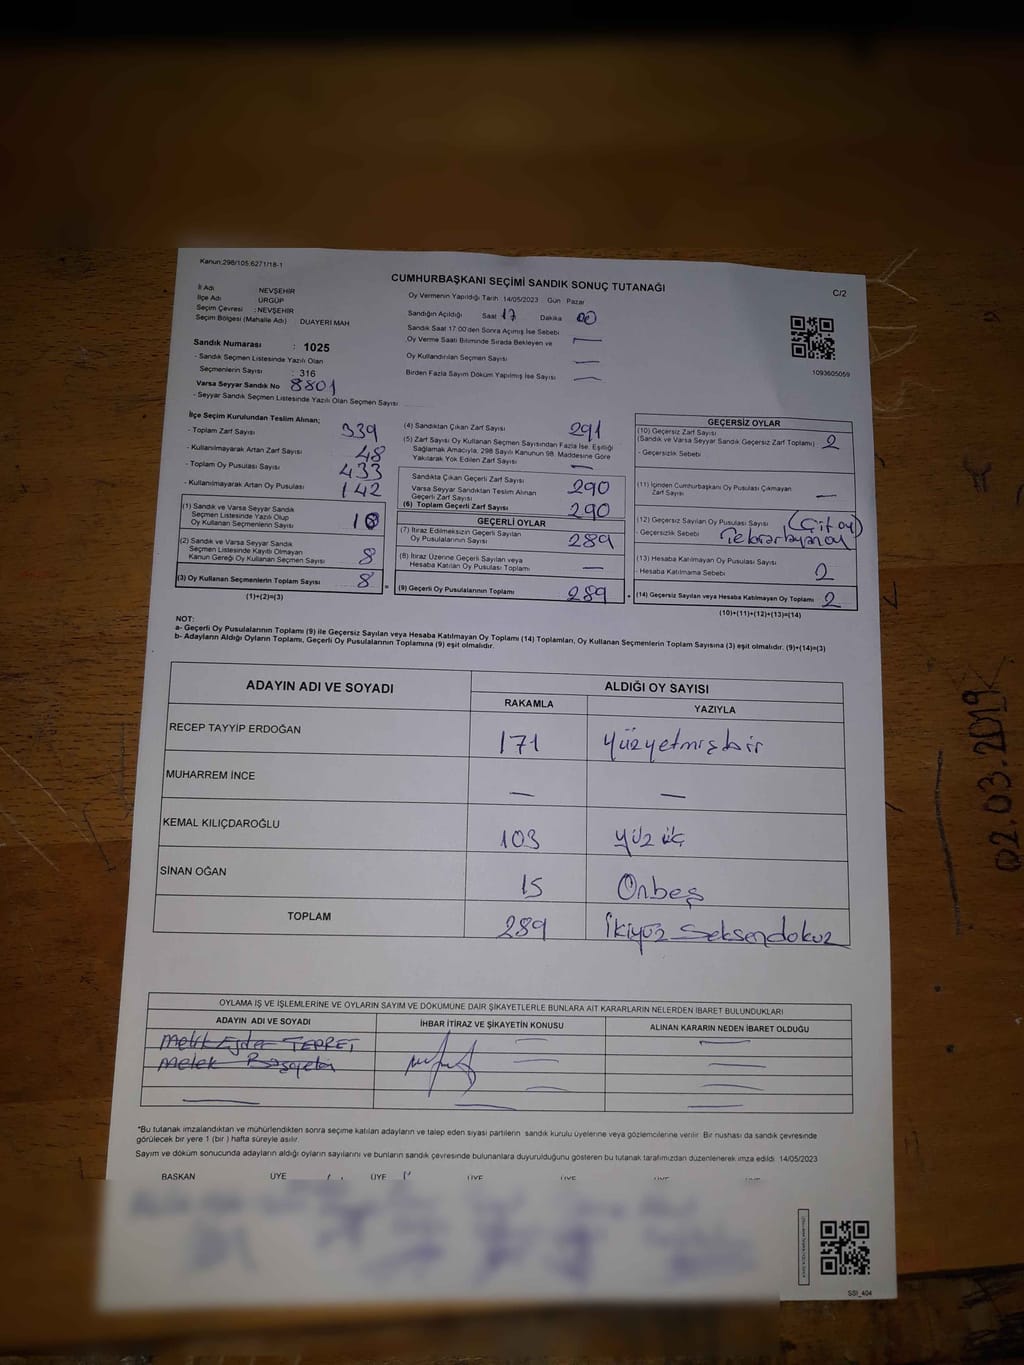 Kanun:298/105:6271/18-1
CUMHURBAŞKANI SEÇİMİ SANDIK SONUÇ TUTANAĞI
C/2
İl Adı NEVŞEHİR
İlçe Adı ÜRGÜP
Seçim Çevresi : NEVŞEHİR
Seçim Bölgesi (Mahalle Adı) DUAYERİ MAH
Oy Vermenin Yapıldığı Tarih 14/05/2023 Gün Pazar
Sandığın Açıldığı Saat 17 Dakika 00
Sandık Saat 17:00'den Sonra Açılmış İse Sebebi
Oy Verme Saati Bitiminde Sırada Bekleyen ve
Oy Kullandırılan Seçmen Sayısı
Birden Fazla Sayım Döküm Yapılmış İse Sayısı
1093605059
Sandık Numarası : 1025
- Sandık Seçmen Listesinde Yazılı Olan
Seçmenlerin Sayısı : 316
Varsa Seyyar Sandık No 8801
- Seyyar Sandık Seçmen Listesinde Yazılı Olan Seçmen Sayısı
İlçe Seçim Kurulundan Teslim Alınan;
- Toplam Zarf Sayısı 339
- Kullanılmayarak Artan Zarf Sayısı 48
- Toplam Oy Pusulası Sayısı 433
- Kullanılmayarak Artan Oy Pusulası 142
(1) Sandık ve Varsa Seyyar Sandık
Seçmen Listesinde Yazılı Olup
Oy Kullanan Seçmenlerin Sayısı
(2) Sandık ve Varsa Seyyar Sandık
Seçmen Listesinde Kayıtlı Olmayan
Kanun Gereği Oy Kullanan Seçmen Sayısı 8
(3) Oy Kullanan Seçmenlerin Toplam Sayısı 8
(1)+(2)=(3)
(4) Sandıktan Çıkan Zarf Sayısı 291
(5) Zarf Sayısı Oy Kullanan Seçmen Sayısından Fazla İse, Eşitliği
Sağlamak Amacıyla, 298 Sayılı Kanunun 98. Maddesine Göre
Yakılarak Yok Edilen Zarf Sayısı —
Sandıkta Çıkan Geçerli Zarf Sayısı 290
Varsa Seyyar Sandıktan Teslim Alınan
Geçerli Zarf Sayısı
(6) Toplam Geçerli Zarf Sayısı 290
GEÇERLİ OYLAR
(7) İtiraz Edilmeksizin Geçerli Sayılan
Oy Pusulalarının Sayısı 289
(8) İtiraz Üzerine Geçerli Sayılan veya
Hesaba Katılan Oy Pusulası Toplamı —
(9) Geçerli Oy Pusulalarının Toplamı 289
GEÇERSİZ OYLAR
(10) Geçersiz Zarf Sayısı
(Sandık ve Varsa Seyyar Sandık Geçersiz Zarf Toplamı) 2
- Geçersizlik Sebebi
(11) İçinden Cumhurbaşkanı Oy Pusulası Çıkmayan
Zarf Sayısı —
(12) Geçersiz Sayılan Oy Pusulası Sayısı (Çift oy)
- Geçersizlik Sebebi
(13) Hesaba Katılmayan Oy Pusulası Sayısı
- Hesaba Katılmama Sebebi 2
(14) Geçersiz Sayılan veya Hesaba Katılmayan Oy Toplamı 2
(10)+(11)+(12)+(13)=(14)
NOT:
a- Geçerli Oy Pusulalarının Toplamı (9) ile Geçersiz Sayılan veya Hesaba Katılmayan Oy Toplamı (14) Toplamları, Oy Kullanan Seçmenlerin Toplam Sayısına (3) eşit olmalıdır. (9)+(14)=(3)
b- Adayların Aldığı Oyların Toplamı, Geçerli Oy Pusulalarının Toplamına (9) eşit olmalıdır.
ADAYIN ADI VE SOYADI ALDIĞI OY SAYISI
RAKAMLA YAZIYLA
RECEP TAYYİP ERDOĞAN 171 Yüzyetmişbir
MUHARREM İNCE — —
KEMAL KILIÇDAROĞLU 103 yüz üç
SİNAN OĞAN 15 Onbeş
TOPLAM 289 İkiyüz Seksendokuz
OYLAMA İŞ VE İŞLEMLERİNE VE OYLARIN SAYIM VE DÖKÜMÜNE DAİR ŞİKAYETLERLE BUNLARA AİT KARARLARIN NELERDEN İBARET BULUNDUKLARI
ADAYIN ADI VE SOYADI İHBAR İTİRAZ VE ŞİKAYETİN KONUSU ALINAN KARARIN NEDEN İBARET OLDUĞU
Melek
*Bu tutanak imzalandıktan ve mühürlendikten sonra seçime katılan adayların ve talep eden siyasi partilerin sandık kurulu üyelerine veya gözlemcilerine verilir. Bir nushası da sandık çevresinde
görülecek bir yere 1 (bir ) hafta süreyle asılır.
Sayım ve döküm sonucunda adayların aldığı oyların sayılarını ve bunların sandık çevresinde bulunanlara duyurulduğunu gösteren bu tutanak tarafımızdan düzenlenerek imza edildi. 14/05/2023
BAŞKAN ÜYE ÜYE ÜYE ÜYE ÜYE ÜYE
SSI_404
02.03.2019